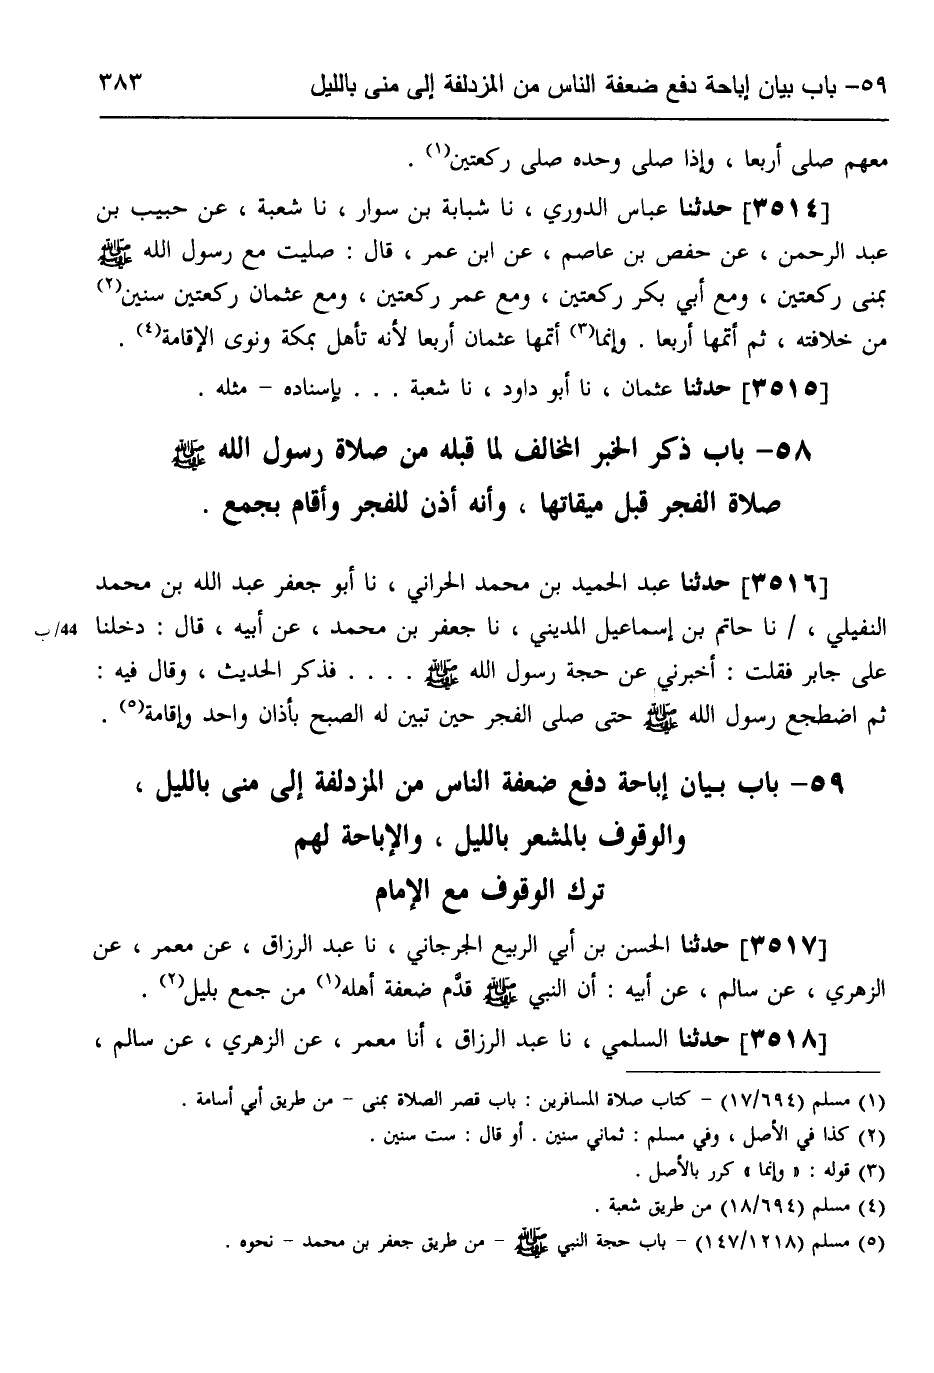 ٥٩- باب بيان إباحة دفع ضعفة الناس من المزدلفة إلى منى بالليل ٣٨٣
معهم صلى أربعا ، وإذا صلى وحده صلى ركعتين(١) .
[٣٥١٤] حدثنا عباس الدوري ، نا شبابة بن سوار ، نا شعبة ، عن حبيب بن
عبد الرحمن ، عن حفص بن عاصم ، عن ابن عمر ، قال : صليت مع رسول الله ﷺ
بمنى ركعتين ، ومع أبي بكر ركعتين ، ومع عمر ركعتين ، ومع عثمان ركعتين سنين(٢)
من خلافته ، ثم أتمها أربعا . وإنما(٣) أتمها عثمان أربعا لأنه تأهل بمكة ونوى الإقامة(٤) .
[٣٥١٥] حدثنا عثمان ، نا أبو داود ، نا شعبة . . . بإسناده – مثله .
٥٨- باب ذكر الخبر المخالف لما قبله من صلاة رسول الله ﷺ
صلاة الفجر قبل ميقاتها ، وأنه أذن للفجر وأقام بجمع .
[٣٥١٦] حدثنا عبد الحميد بن محمد الحراني ، نا أبو جعفر عبد الله بن محمد
النفيلي ، / نا حاتم بن إسماعيل المديني ، نا جعفر بن محمد ، عن أبيه ، قال : دخلنا 44/ب
على جابر فقلت : أخبرني عن حجة رسول الله ﷺ . . . . فذكر الحديث ، وقال فيه :
ثم اضطجع رسول الله ﷺ حتى صلى الفجر حين تبين له الصبح بأذان واحد وإقامة(٥) .
٥٩- باب بيان إباحة دفع ضعفة الناس من المزدلفة إلى منى بالليل ،
والوقوف بالمشعر بالليل ، والإباحة لهم
ترك الوقوف مع الإمام
[٣٥١٧] حدثنا الحسن بن أبي الربيع الجرجاني ، نا عبد الرزاق ، عن معمر ، عن
الزهري ، عن سالم ، عن أبيه : أن النبي ﷺ قدَّم ضعفة أهله(١) من جمع بليل(٢) .
[٣٥١٨] حدثنا السلمي ، نا عبد الرزاق ، أنا معمر ، عن الزهري ، عن سالم ،
(١) مسلم (١٧/٦٩٤) – كتاب صلاة المسافرين : باب قصر الصلاة بمنى – من طريق أبي أسامة .
(٢) كذا في الأصل ، وفي مسلم : ثماني سنين . أو قال : ست سنين .
(٣) قوله : « وإنما » كرر بالأصل .
(٤) مسلم (١٨/٦٩٤) من طريق شعبة .
(٥) مسلم (١٤٧/١٢١٨) – باب حجة النبي ﷺ – من طريق جعفر بن محمد – نحوه .